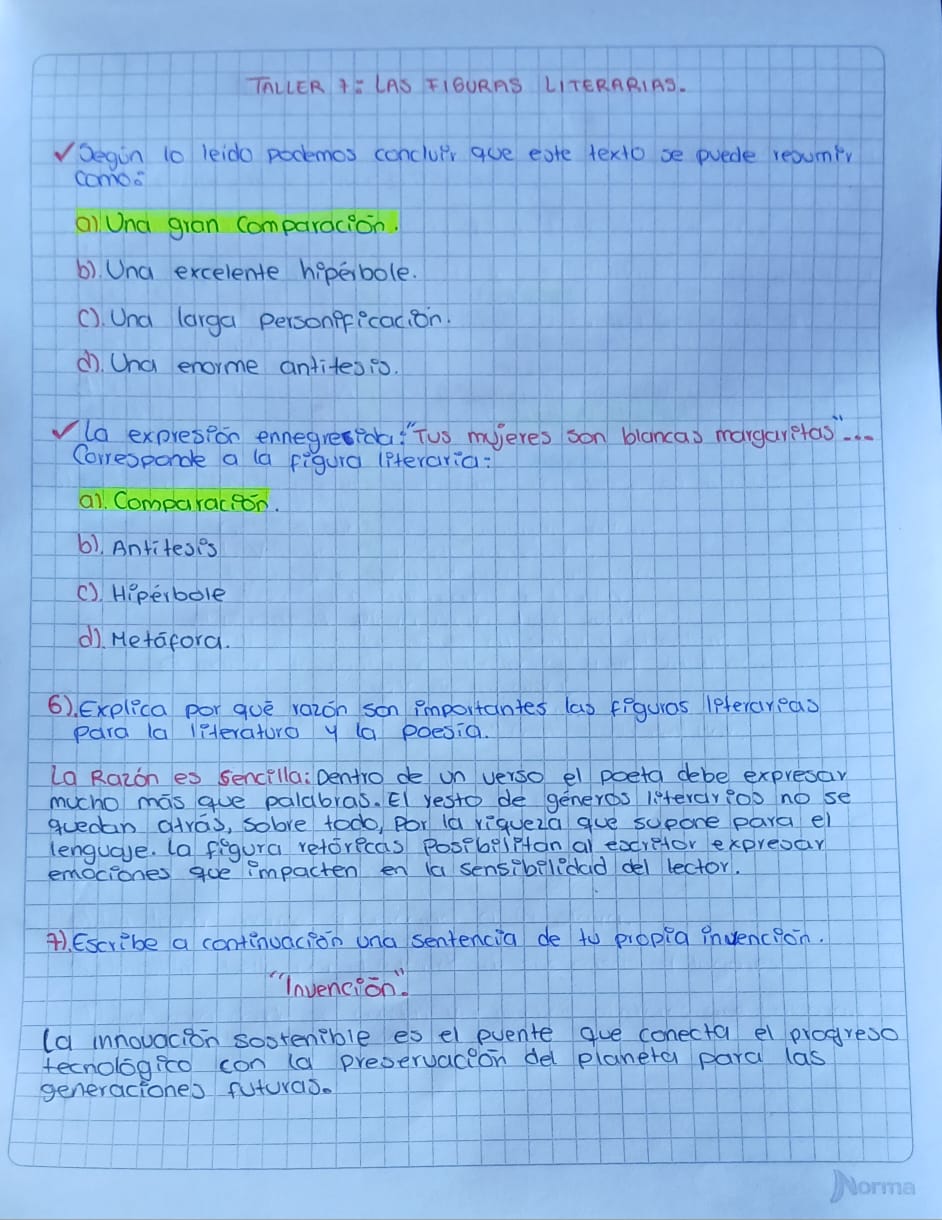 TALLER 7: LAS FIGURAS LITERARIAS.
✓ Según lo leído podemos concluir que este texto se puede resumir
como:
a). Una gran comparación.
b). Una excelente hipérbole.
c). Una larga personificación.
d). Una enorme antítesis.
✓ La expresión ennegrecida: "Tus mujeres son blancas margaritas"...
Corresponde a la figura literaria:
a). Comparación.
b). Antítesis
c). Hipérbole
d). Metáfora.
6). Explica por qué razón son importantes las figuras literarias
para la literatura y la poesía.
La Razón es sencilla: Dentro de un verso el poeta debe expresar
mucho más que palabras. El resto de géneros literarios no se
quedan atrás, sobre todo, por la riqueza que supone para el
lenguaje. La figura retóricas posibilitan al escritor expresar
emociones que impacten en la sensibilidad del lector.
7). Escribe a continuación una sentencia de tu propia invención.
"Invención".
La innovación sostenible es el puente que conecta el progreso
tecnológico con la preservación del planeta para las
generaciones futuras.
Norma